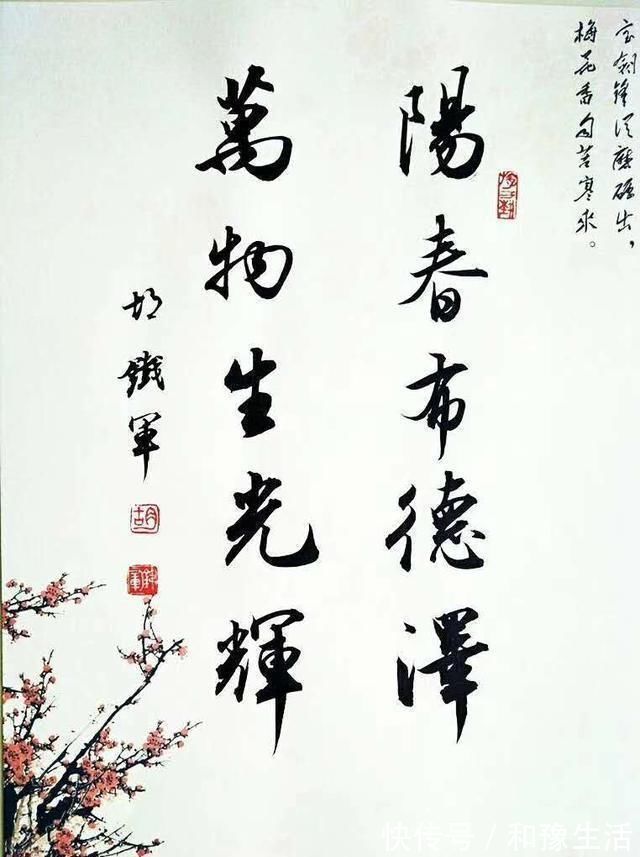 宝剑锋从磨砺出，
梅花香自苦寒来。
陽春布德澤
萬物生光輝
胡鐵軍
胡
快传号 / 和豫生活